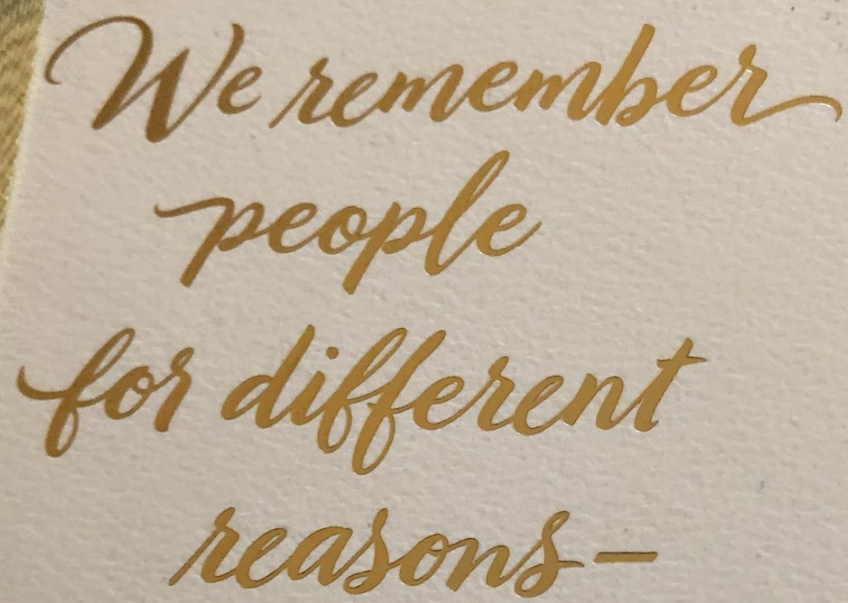 We remember
people
for different
reasons—